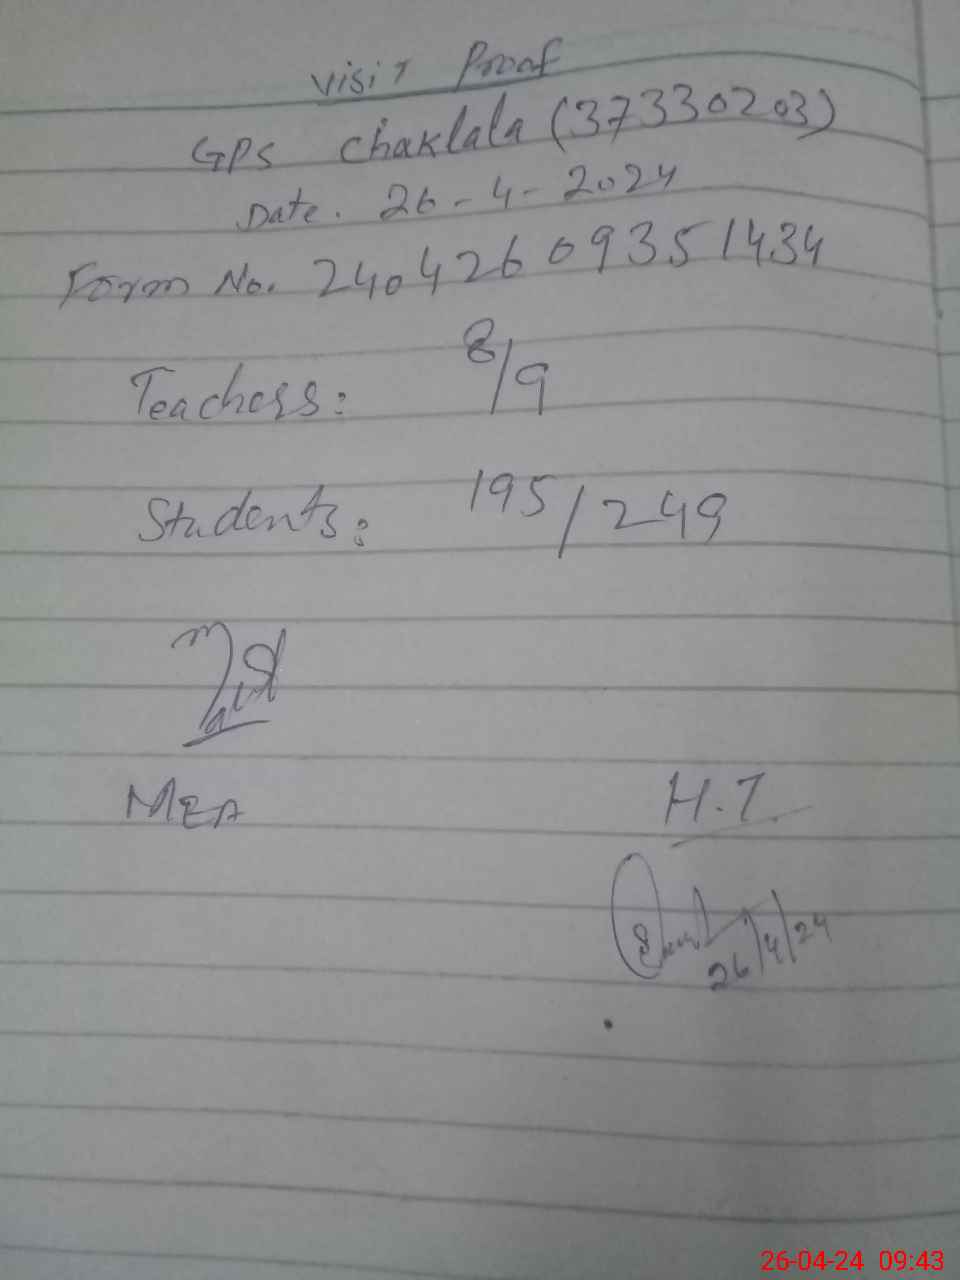 Visit Proof
GPS Chaklala (37330203)
Date. 26-4-2024
Form No. 240426093351434
Teachers: 8/9
Students: 195/249
MEA
H.T.
26/4/24
26-04-24 09:43